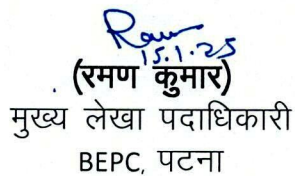 15.1.25
(रमण कुमार)
मुख्य लेखा पदाधिकारी
BEPC, पटना